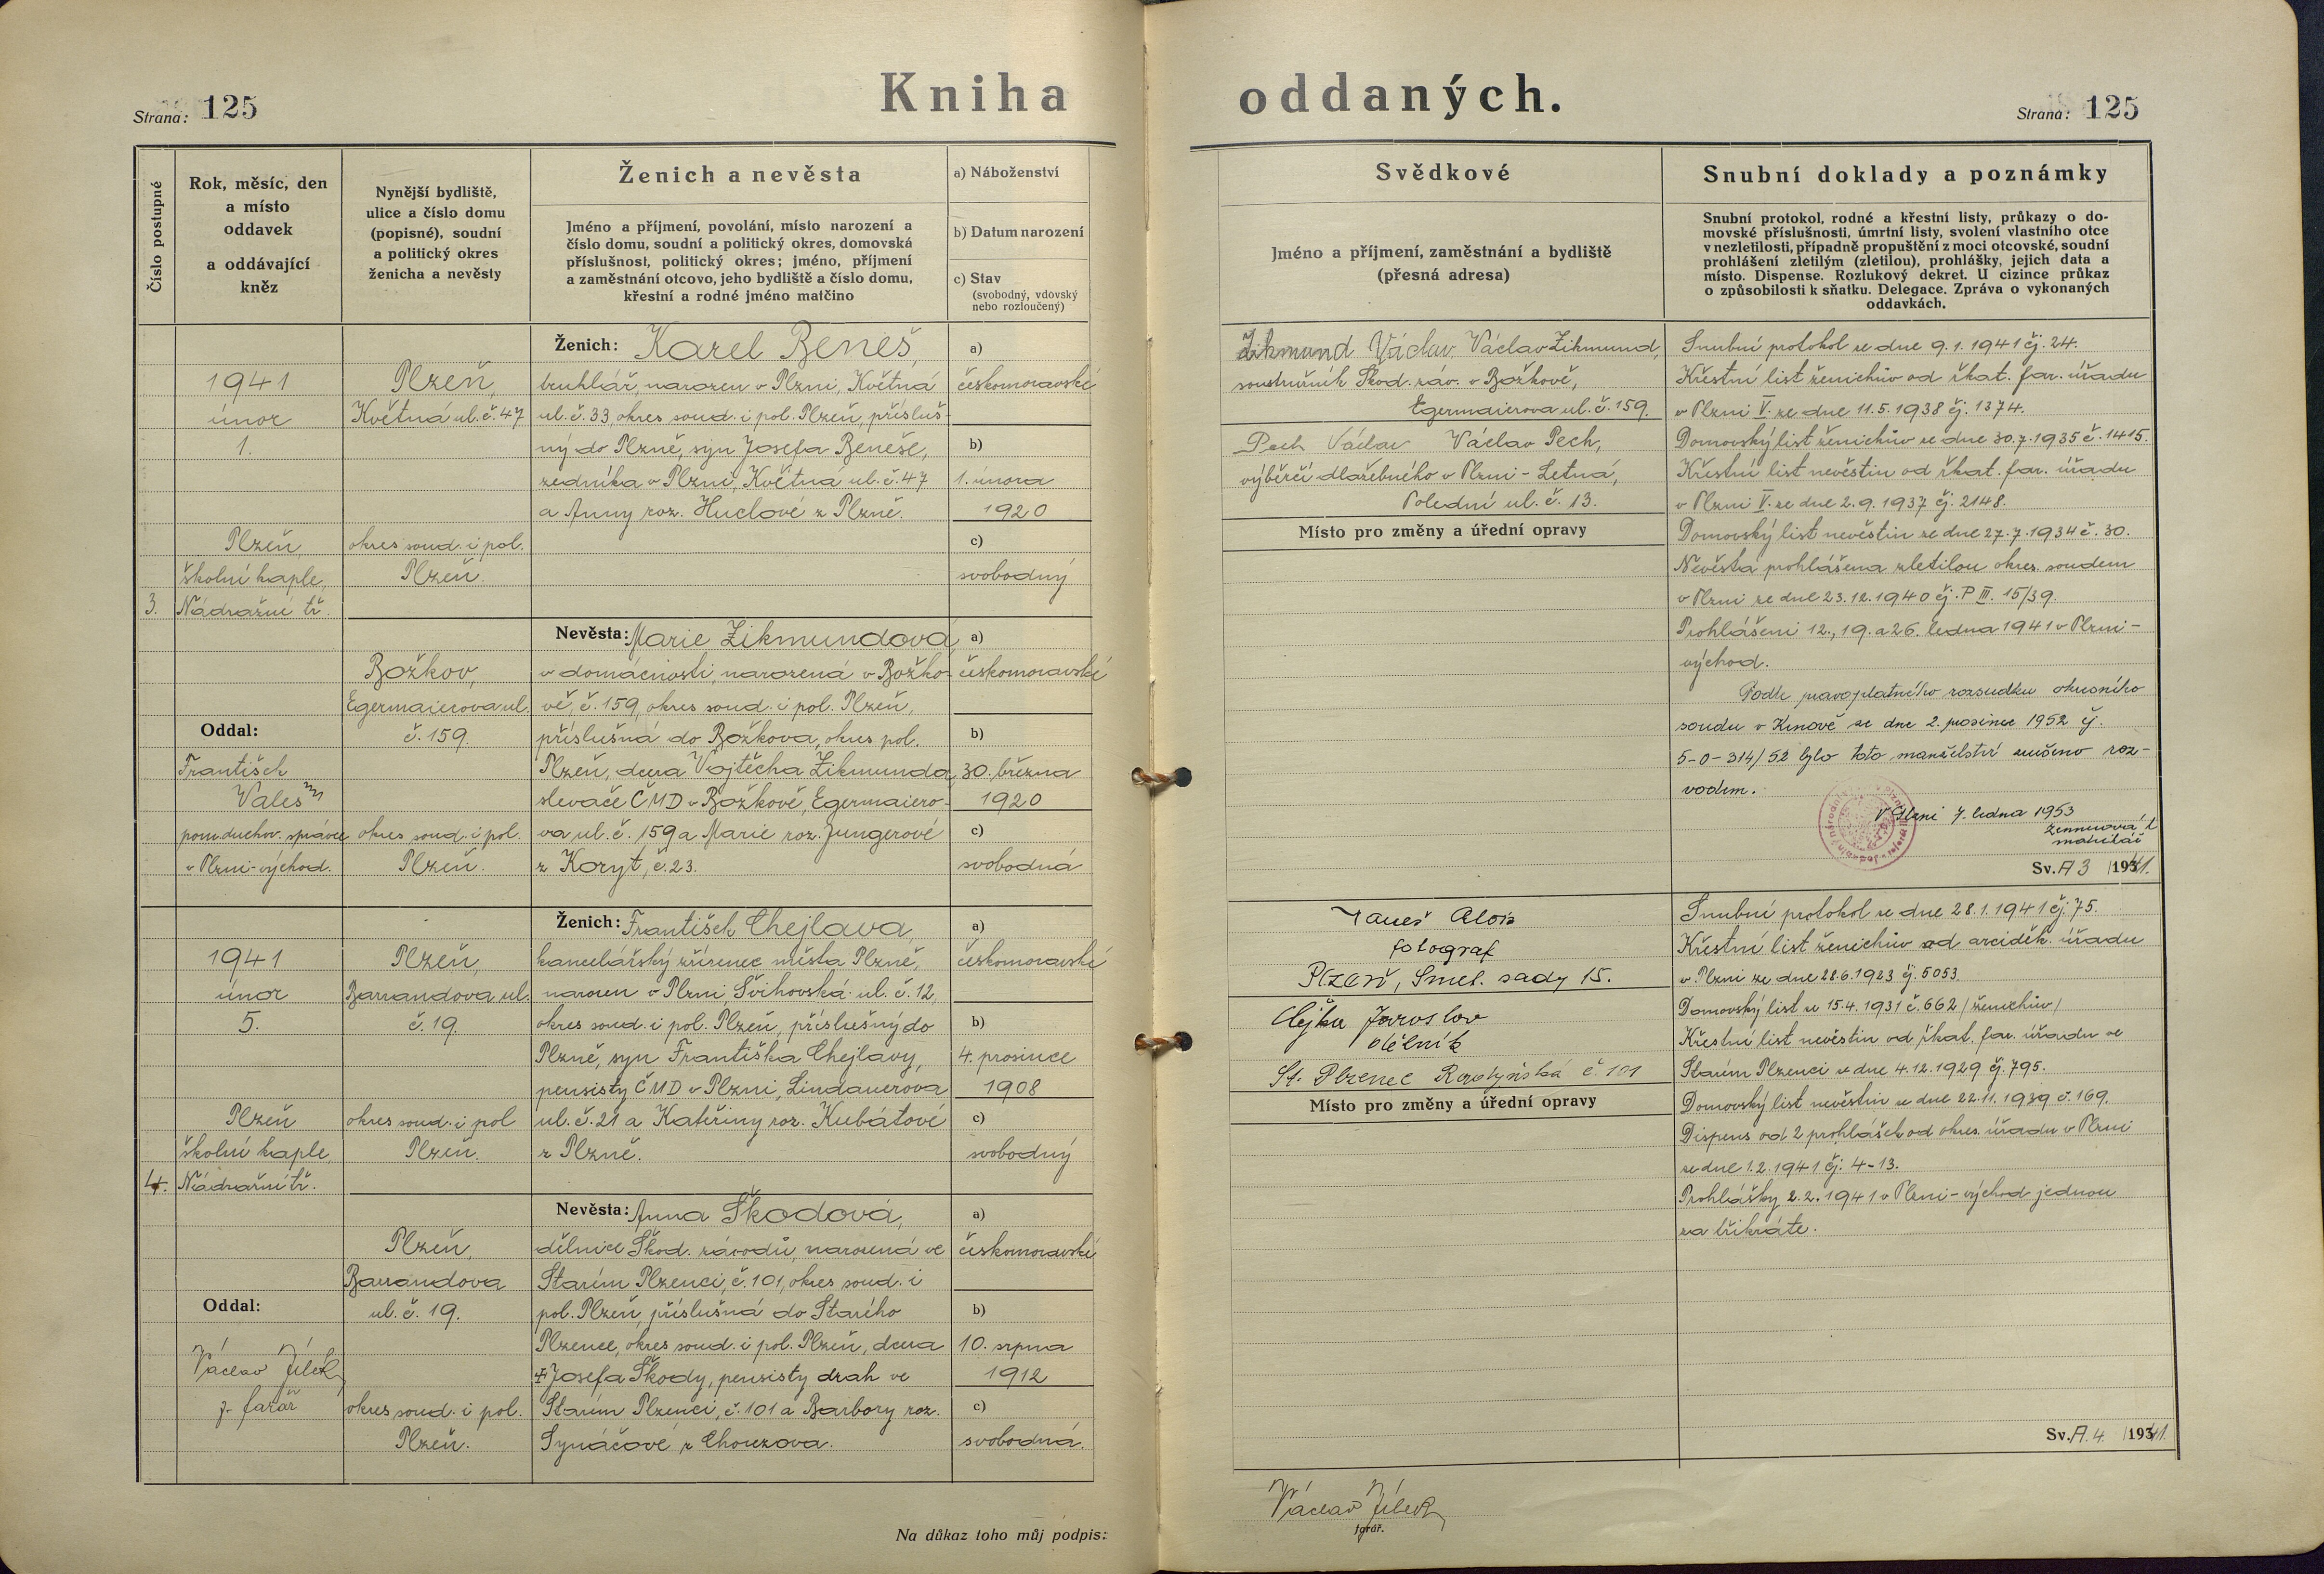 Strana: 125
Kniha oddaných.
Strana: 125
Číslo postupné
Rok, měsíc, den
a místo
oddavek
a oddávající
kněz
Nynější bydliště,
ulice a číslo domu
(popisné), soudní
a politický okres
ženicha a nevěsty
Ženich a nevěsta
Jméno a příjmení, povolání, místo narození a
číslo domu, soudní a politický okres, domovská
příslušnost, politický okres; jméno, příjmení
a zaměstnání otcovo, jeho bydliště a číslo domu,
křestní a rodné jméno matčino
a) Náboženství
b) Datum narození
c) Stav
(svobodný, vdovský
nebo rozloučený)
Svědkové
Jméno a příjmení, zaměstnání a bydliště
(přesná adresa)
Snubní doklady a poznámky
Snubní protokol, rodné a křestní listy, průkazy o do-
movské příslušnosti, úmrtní listy, svolení vlastního otce
v nezletilosti, případně propuštění z moci otcovské, soudní
prohlášení zletilým (zletilou), prohlášky, jejich data a
místo. Dispense. Rozlukový dekret. U cizince průkaz
o způsobilosti k sňatku. Delegace. Zpráva o vykonaných
oddavkách.
3.
1941
únor
1.
Plzeň
školní kaple,
Nádražní tř.
Oddal:
František
Vales
pom. duchov. správce
v Plzni-východ.
Plzeň,
Květná ul. č. 47
okres soud. i pol.
Plzeň.
Božkov,
Egermaierova ul.
č. 159.
okres soud. i pol.
Plzeň.
Ženich: Karel Beneš,
truhlář, narozen v Plzni, Květná
ul. č. 33, okres soud. i pol. Plzeň, přísluš-
ný do Plzně, syn Josefa Beneše,
zedníka v Plzni, Květná ul. č. 47
a Anny roz. Huclové z Plzně.
Nevěsta: Marie Zikmundová,
v domácnosti, narozená v Božko-
vě, č. 159, okres soud. i pol. Plzeň,
příslušná do Božkova, okres pol.
Plzeň, dcera Vojtěcha Zikmunda,
slevače ČMD v Božkově, Egermaiero-
va ul. č. 159 a Marie roz. Jungerové
z Koryt, č. 23.
a)
českomoravské
b)
1. února
1920
c)
svobodný
a)
českomoravské
b)
30. března
1920
c)
svobodná
Zikmund Václav Václav Zikmund,
soustružník Škod. záv. v Božkově,
Egermaierova ul. č. 159.
Pech Václav Václav Pech,
výběrčí dlažebného v Plzni - Letná,
Polední ul. č. 13.
Místo pro změny a úřední opravy
Snubní protokol ze dne 9. 1. 1941 čj. 24.
Křestní list ženichův od řkat. far. úřadu
v Plzni V. ze dne 11. 5. 1938 čj. 1374.
Domovský list ženichův ze dne 30. 7. 1935 č. 1415.
Křestní list nevěstin od řkat. far. úřadu
v Plzni V. ze dne 2. 9. 1937 čj. 2148.
Domovský list nevěstin ze dne 27. 7. 1934 č. 30.
Nevěsta prohlášena zletilou okres. soudem
v Plzni ze dne 23. 12. 1940 čj. P III. 15/39.
Prohlášeni 12., 19. a 26. ledna 1941 v Plzni-
východ.
Podle pravoplatného rozsudku okresního
soudu v Kinově ze dne 2. prosince 1952 čj.
5-0-314/52 bylo toto manželství zrušeno roz-
vodem.
V Plzni 7. ledna 1953
matrikář
Sv. A 3 / 1941.
4.
1941
únor
5.
Plzeň
školní kaple,
Nádražní tř.
Oddal:
Václav Jílek
z. farář
Plzeň,
Barrandova ul.
č. 19.
okres soud. i pol
Plzeň.
Plzeň,
Barrandova
ul. č. 19.
okres soud. i pol.
Plzeň.
Ženich: František Chejlava,
kancelářský zřízenec města Plzně,
narozen v Plzni, Švihovská ul. č. 12,
okres soud. i pol. Plzeň, příslušný do
Plzně, syn Františka Chejlavy,
pensisty ČMD v Plzni, Lindauerova
ul. č. 21 a Kateřiny roz. Kubátové
z Plzně.
Nevěsta: Anna Škodová,
dělnice Škod. závodů, narozená ve
Starém Plzenci, č. 101, okres soud. i
pol. Plzeň, příslušná do Starého
Plzence, okres soud. i pol. Plzeň, dcera
‡ Josefa Škody, pensisty drah ve
Starém Plzenci, č. 101 a Barbory roz.
Synáčové z Chouzova.
a)
českomoravské
b)
4. prosince
1908
c)
svobodný
a)
českomoravské
b)
10. srpna
1912
c)
svobodná.
Janeš Alois
fotograf
Plzeň, Smet. sady 15.
Jaroslav
St. Plzenec č 101
Místo pro změny a úřední opravy
Snubní protokol ze dne 28. 1. 1941 čj. 75.
Křestní list ženichův od arciděk. úřadu
v Plzni ze dne 28. 6. 1923 čj. 5053.
Domovský list ze 15. 4. 1931 č. 662 / ženichův /
Křestní list nevěstin od řkat. far. úřadu ve
Starém Plzenci ze dne 4. 12. 1929 čj. 795.
Domovský list nevěstin ze dne 22. 11. 1939 č. 169.
Dispens od 2 prohlášek od okres. úřadu v Plzni
ze dne 1. 2. 1941 čj: 4-13.
Prohlášky 2. 2. 1941 v Plzni - východ jednou
za třikráte.
Sv. A. 4. / 1941.
Na důkaz toho můj podpis:
Václav Jílek
farář.